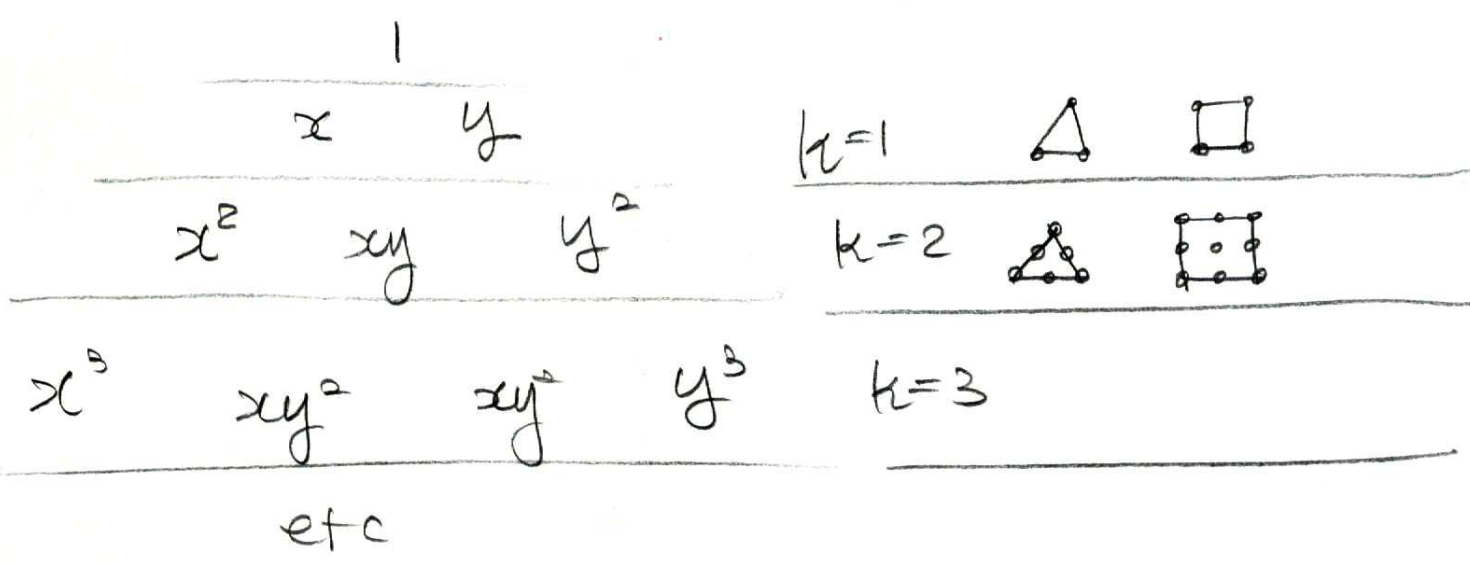 1
x y k=1
x² xy y² k=2
x³ xy² xy² y³ k=3
etc